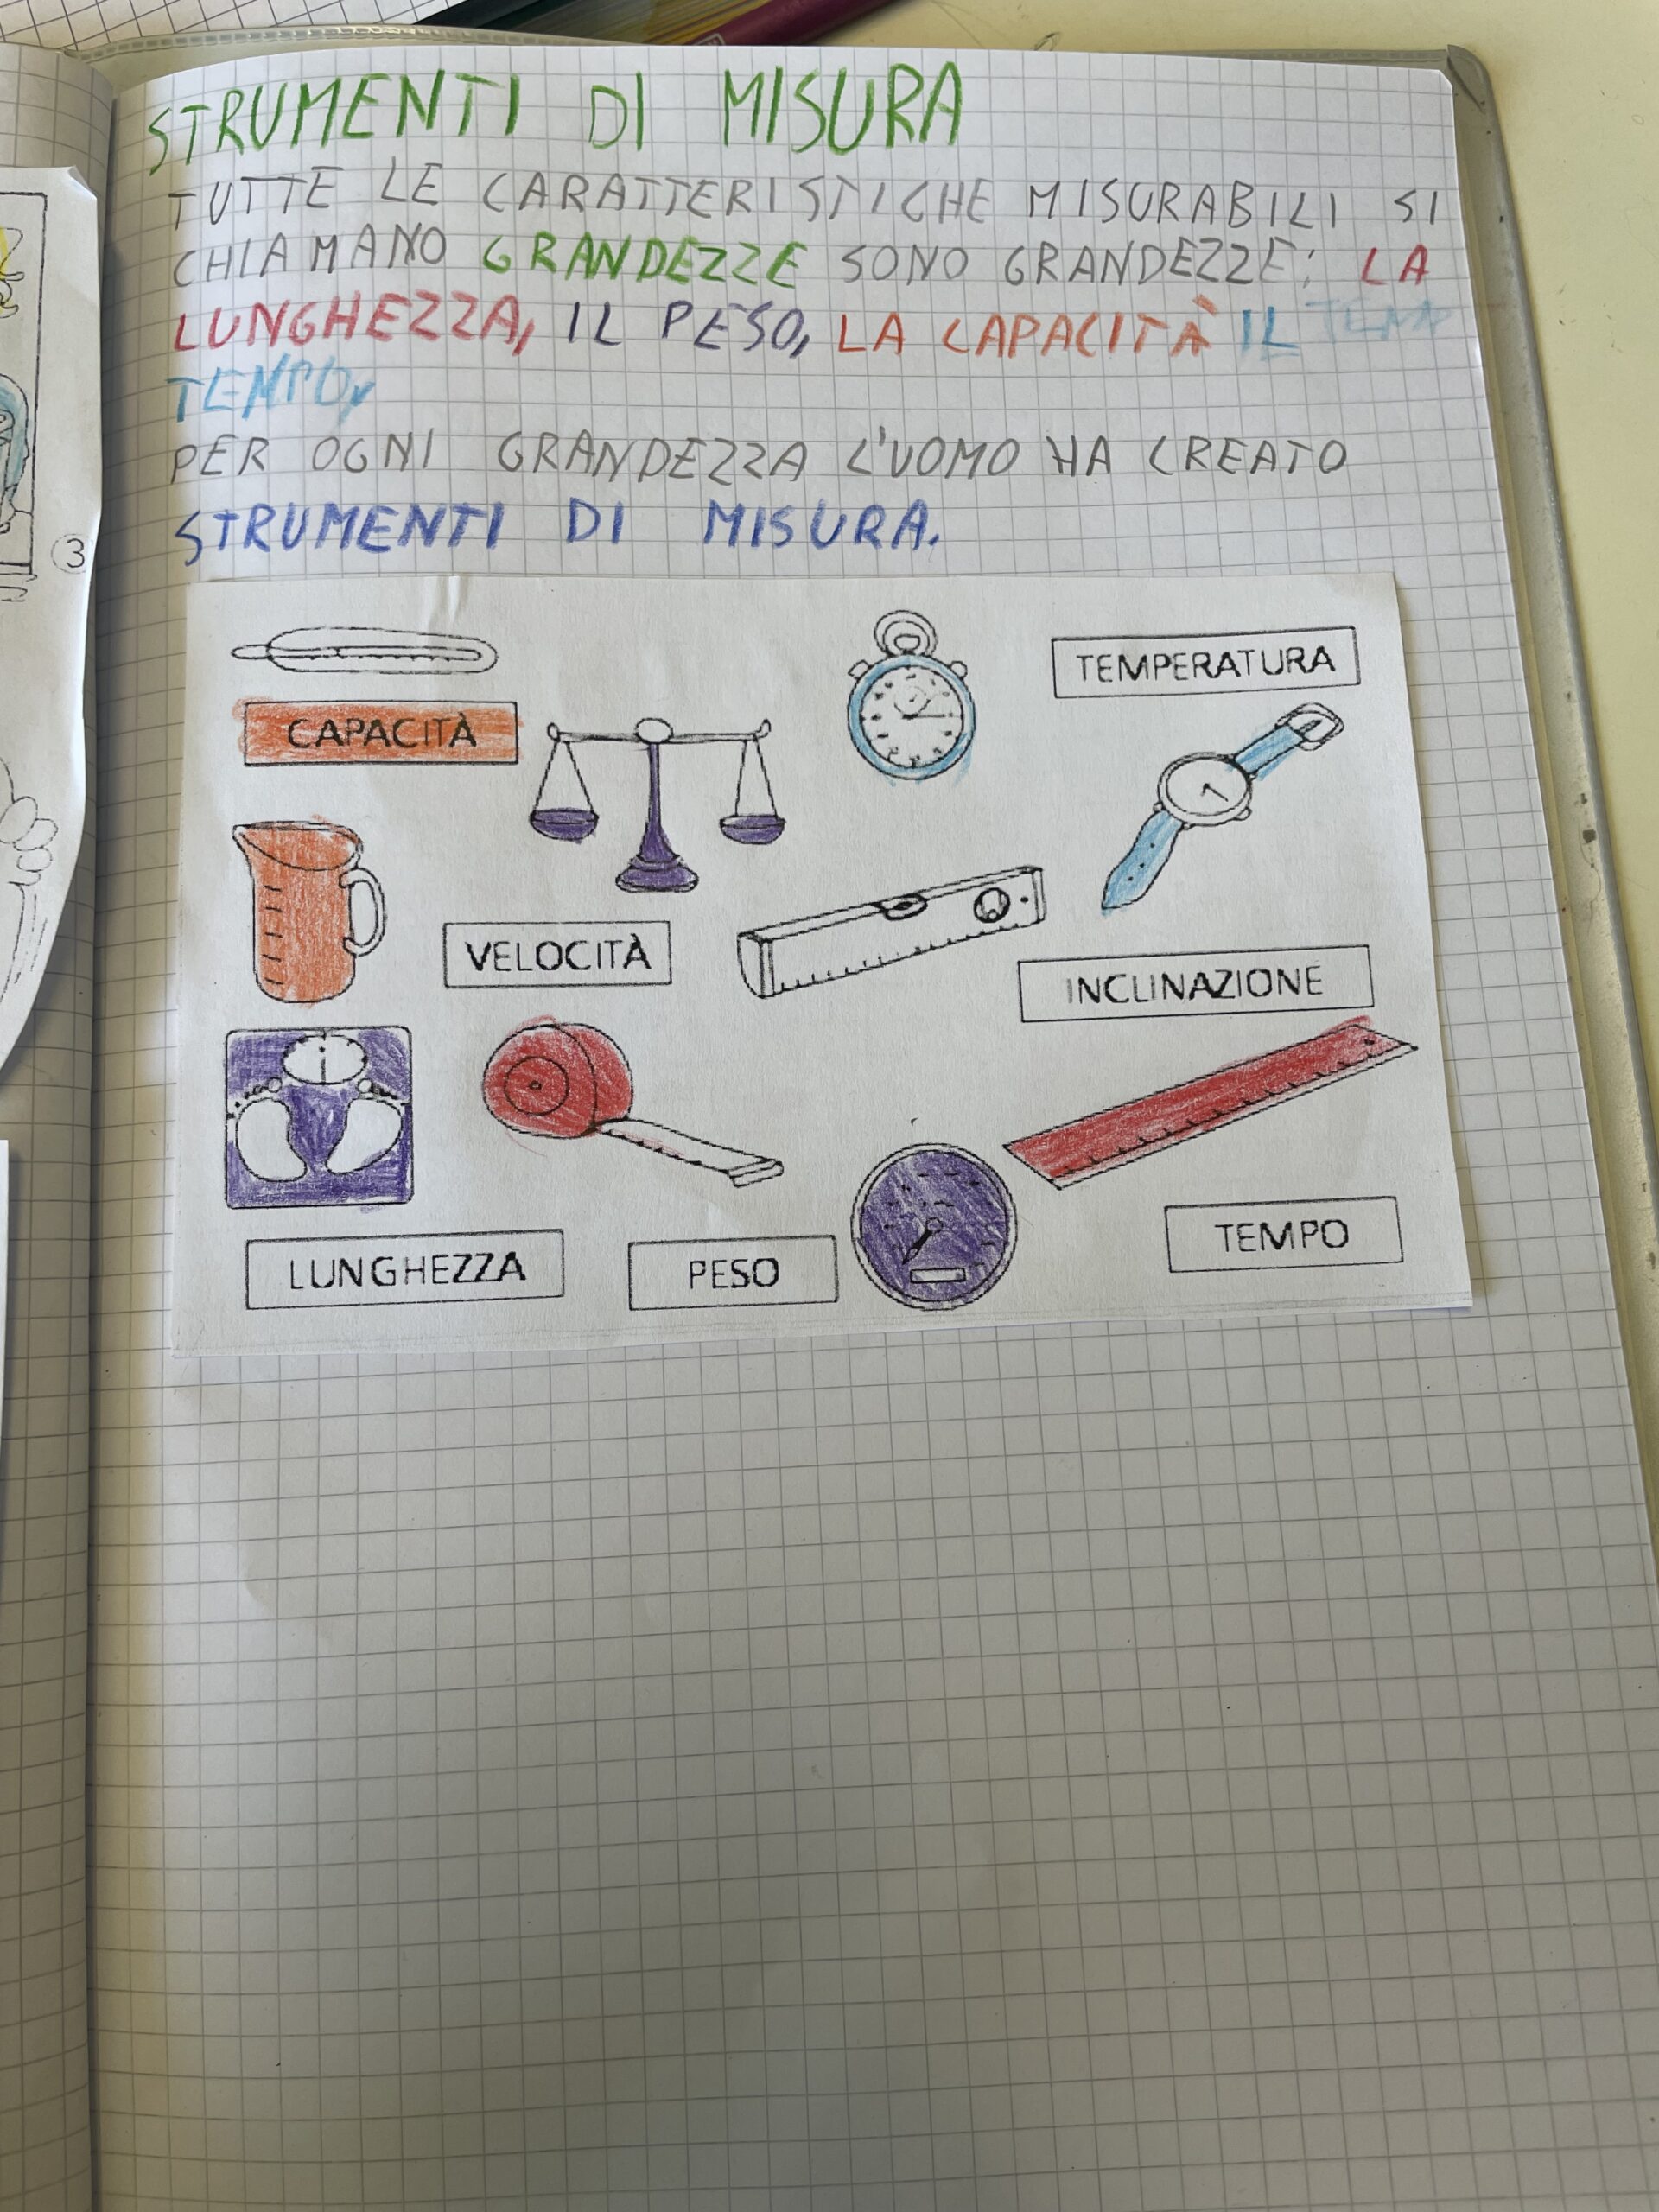 STRUMENTI DI MISURA
TUTTE LE CARATTERISTICHE MISURABILI SI
CHIAMANO GRANDEZZE SONO GRANDEZZE: LA
LUNGHEZZA, IL PESO, LA CAPACITÀ IL TEMP
TEMPO,
PER OGNI GRANDEZZA L'UOMO HA CREATO
STRUMENTI DI MISURA.
TEMPERATURA
CAPACITÀ
VELOCITÀ
INCLINAZIONE
LUNGHEZZA
PESO
TEMPO
3